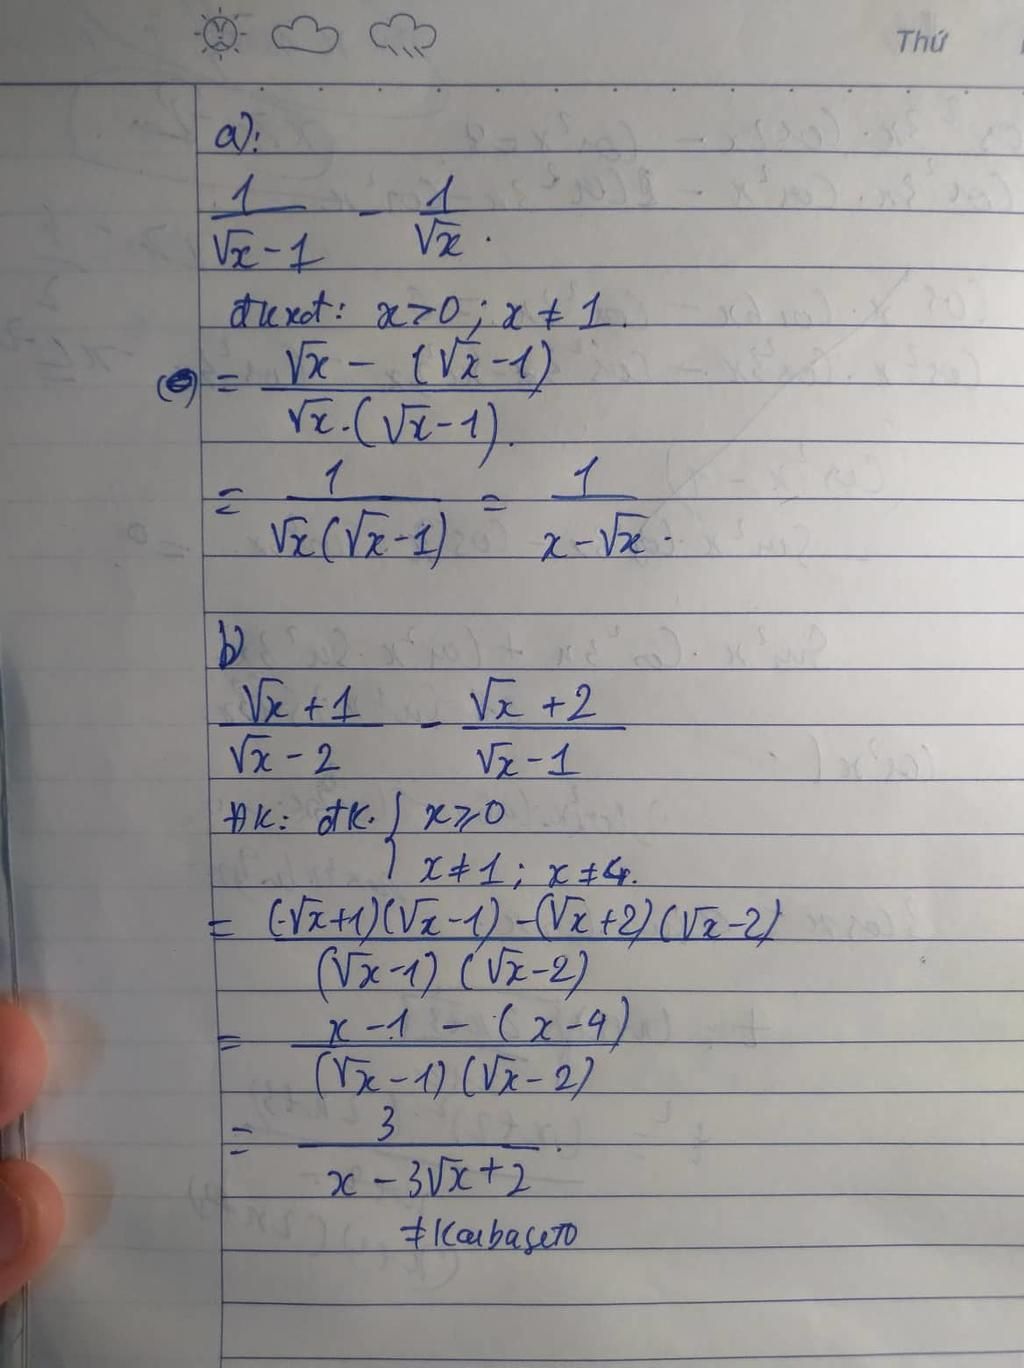 Thứ
a):
1/(√x - 1) - 1/√x.
đkxđ: x > 0 ; x ≠ 1.
= (√x - (√x - 1))/(√x.(√x - 1)).
= 1/(√x(√x - 1)) = 1/(x - √x).
b)
(√x + 1)/(√x - 2) - (√x + 2)/(√x - 1)
ĐK: đk. { x ≥ 0
x ≠ 1 ; x ≠ 4.
= ((√x + 1)(√x - 1) - (√x + 2)(√x - 2))/((√x - 1)(√x - 2))
= (x - 1 - (x - 4))/((√x - 1)(√x - 2))
= 3/(x - 3√x + 2).